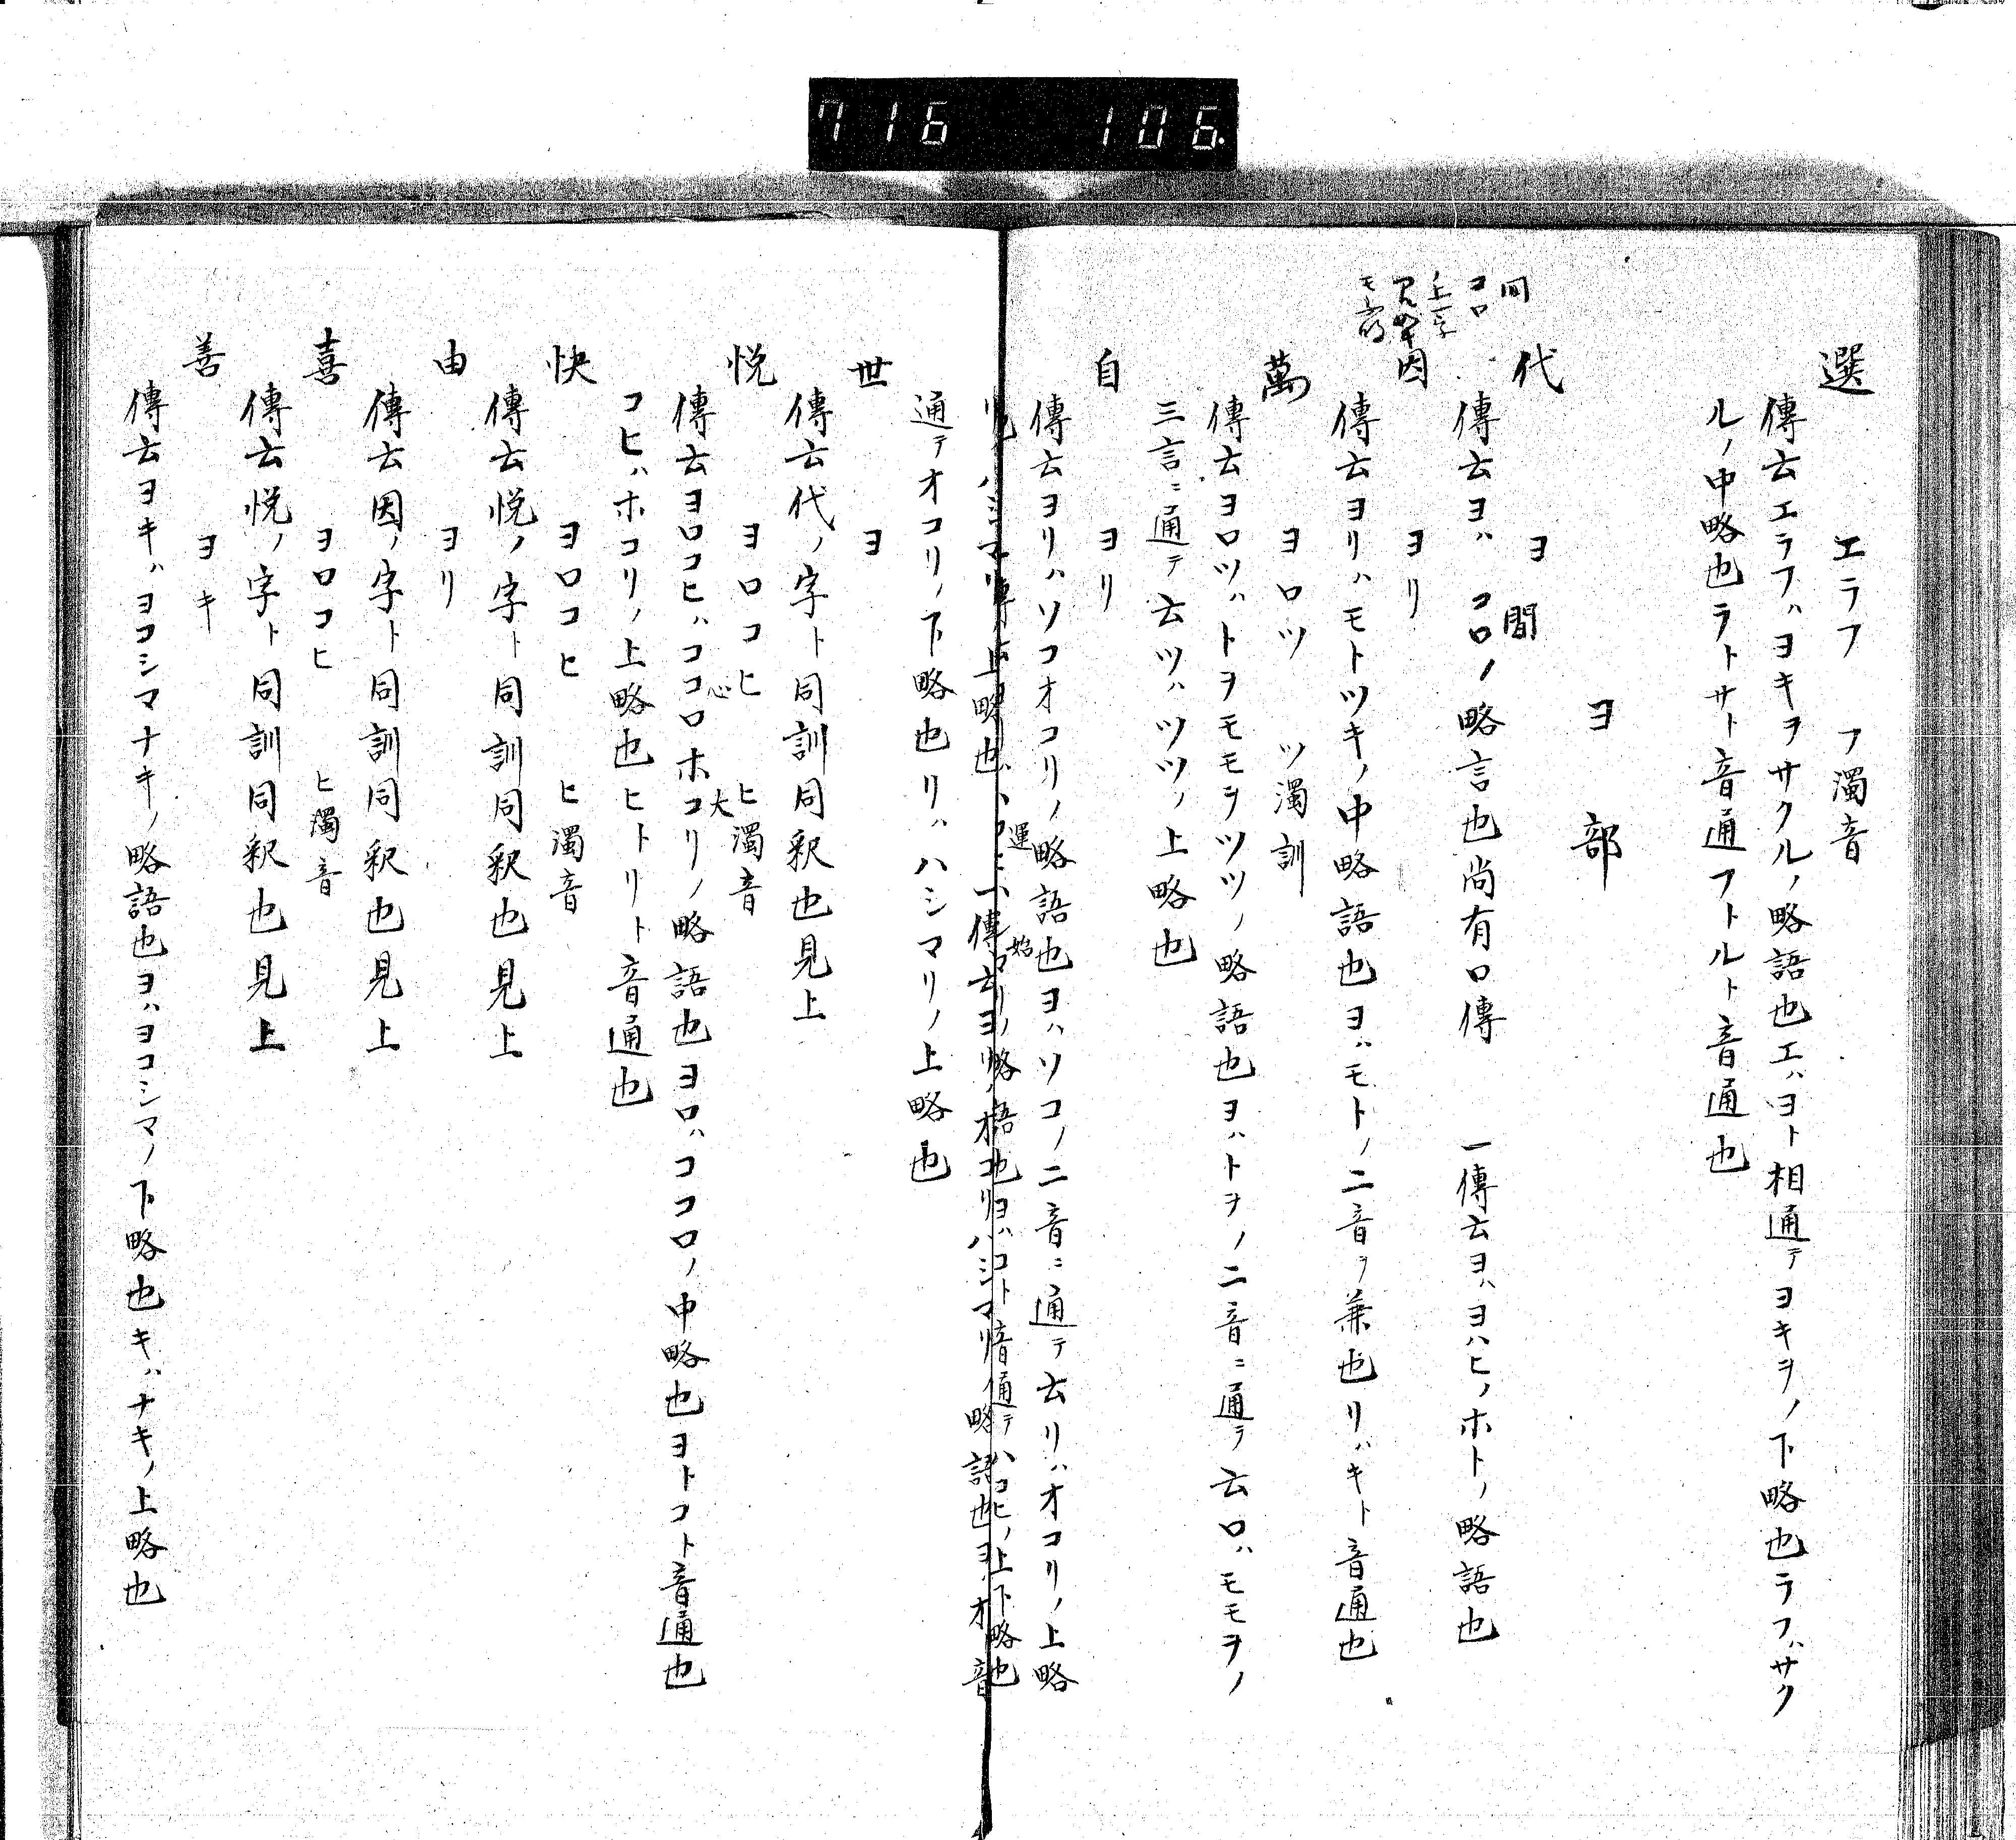 716 106.
選 エラフ フ濁音
傳云エラフハヨキヲサクルノ略語也エハヨト相通テヨキヲノ下略也ラフハサク
ルノ中略也ラトサト音通フトルト音通也
ヨ部
代 ヨ 間
傳云ヨハコロノ略言也尚有口傳 一傳云ヨハヨハヒノホトノ略語也
間
コロ
上一字
因 ヨリ
傳云ヨリハモトツキノ中略語也ヨハモトノ二音ヲ兼也リハキト音通也
萬 ヨロツ ツ濁訓
傳云ヨロツハトヲモモヲツツノ略語也ヨハトヲノ二音ニ通テ云ロハモモヲノ
三言ニ通テ云ツハツツノ上略也
自 ヨリ
傳云ヨリハソコオコリノ略語也ヨハソコノ二音ニ通テ云リハオコリノ上略
運 始
一傳云ヨリハオコリハシマリノ略語也ヨハオ音
通テオコリノ下略也リハハシマリノ上略也
世 ヨ
傳云代ノ字ト同訓同釈也見上
悦 ヨロコヒ ヒ濁音
心 大
傳云ヨロコヒハココロホコリノ略語也ヨロハココロノ中略也ヨトコト音通也
コヒハホコリノ上略也ヒトリト音通也
快 ヨロコヒ ヒ濁音
傳云悦ノ字ト同訓同釈也見上
由 ヨリ
傳云因ノ字ト同訓同釈也見上
喜 ヨロコヒ ヒ濁音
傳云悦ノ字ト同訓同釈也見上
善 ヨキ
傳云ヨキハヨコシマナキノ略語也ヨハヨコシマノ下略也キハナキノ上略也